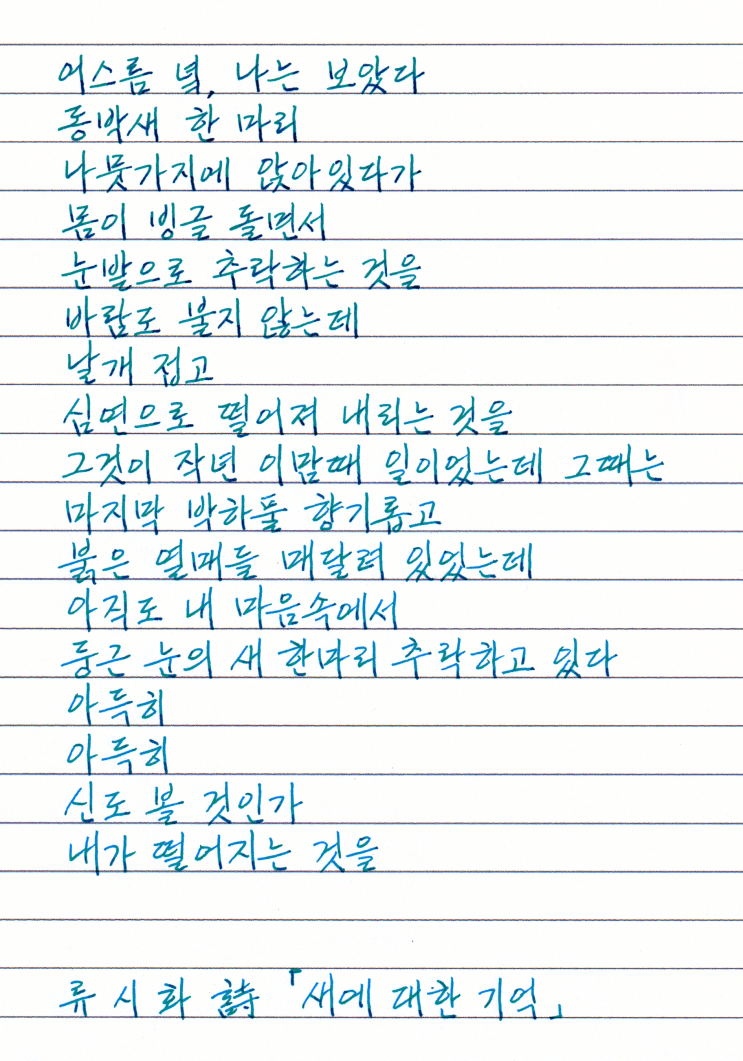 어스름 녘, 나는 보았다
동박새 한 마리
나뭇가지에 앉아있다가
몸이 빙글 돌면서
눈발으로 추락하는 것을
바람도 불지 않는데
날개 접고
심연으로 떨어져 내리는 것을
그것이 작년 이맘때 일이었는데 그때는
마지막 박하풀 향기롭고
붉은 열매들 매달려 있었는데
아직도 내 마음속에서
둥근 눈의 새 한마리 추락하고 있다
아득히
아득히
신도 볼 것인가
내가 떨어지는 것을
류 시 화 詩 「새에 대한 기억」